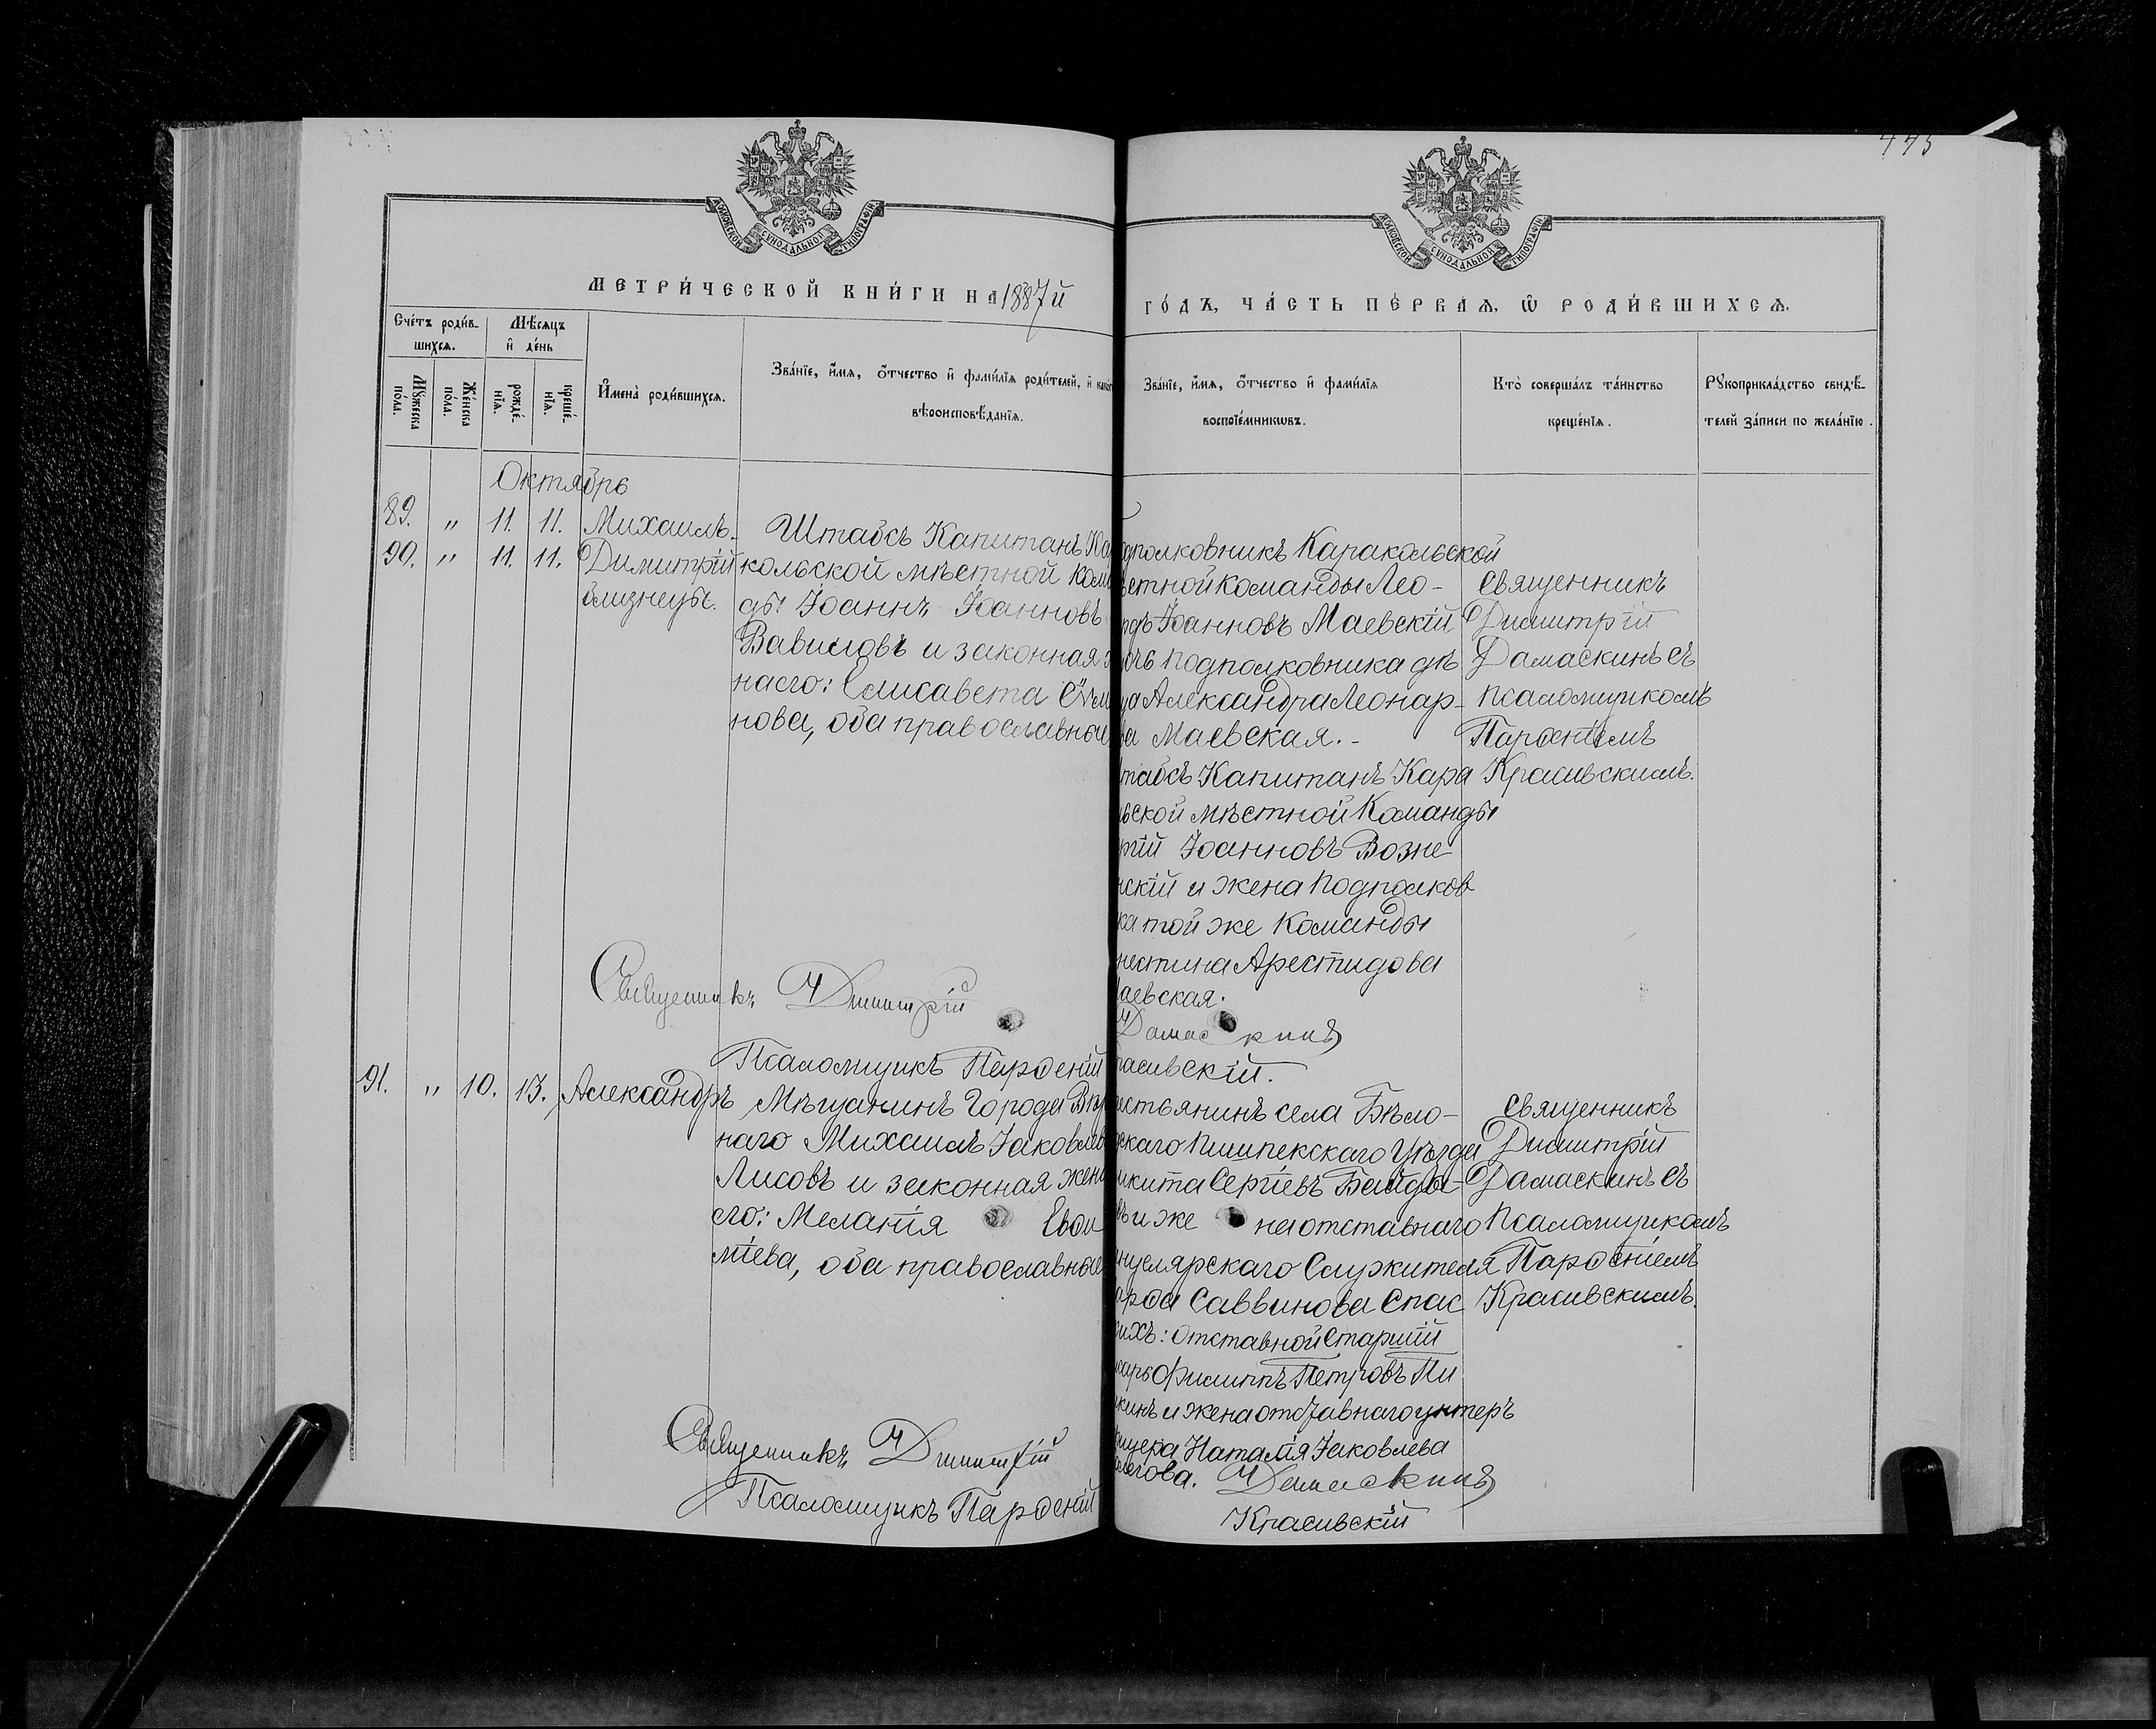 445
МОСКОВСКОЙ СѴНОДАЛЬНОЙ ТИПОГРАФІИ
МОСКОВСКОЙ СѴНОДАЛЬНОЙ ТИПОГРАФІИ
МЕТРИ́ЧЕСКОЙ КНИ́ГИ НА 1887й
ГО́ДЪ, ЧА́СТЬ ПЕ́РВАѦ, Ѡ РОДИ́ВШИХСѦ.
Сче́тъ роди́в-
шихсѧ.
Мѣ́сѧцъ
и де́нь
Мꙋ́жеска
по́ла.
Же́нска
по́ла.
рожде́-
нїѧ.
креще́-
нїѧ.
Имена̀ роди́вшихсѧ.
Зва́нїе, и́мѧ, о́тчество и фами́лїѧ роди́телей, и
вѣроисповѣ́данїѧ.
Зва́нїе, и́мѧ, о́тчество и фами́лїѧ
воспрїе́мникѡвъ.
Кто̀ соверша́лъ та́инство
креще́нїѧ.
Рꙋкоприкла́дство свидѣ́-
телей за́писи по жела́нїю.
Октябрь
89. " 11. 11. Михаилъ.
90. " 11. 11. Димитрій
близнецы.
Штабсъ Капитанъ Ка
кольской мѣстной ком
ды Іоаннъ Іоанновъ
Вавиловъ и законная
на его: Елисавета Сѵм
нова, оба православные
дполковникъ Каракольской
стной команды Лео-
рдъ Іоанновъ Маевскій
очь подполковника дѣ
ца Александра Леонар-
ва Маевская.-
табсъ Капитанъ Кара
ьской мѣстной Команды
ргій Іоанновъ Возне
нскій и жена Подполков
ка той же Команды
нестина Арестидова
аевская.
Священникъ
Димитрій
Дамаскинъ съ
псаломщикомъ
Парѳеніемъ
Красивскимъ.
Священникъ Димитрій
Дамаскинъ
Псаломщикъ Парѳеній
расивскій.
91. " 10. 13. Александръ
Мѣщанинъ Города Вѣр
наго Михаилъ Іаковлев
Лисовъ и законная жен
его: Меланія Евѳи
міева, оба православные
естьянинъ села Бѣло-
дскаго Пишпекскаго Уѣзда
икита Сергіевъ Байды-
въ и же на отставнаго
нцелярскаго Служителя
арѳа Саввинова Спас
ихъ: отставной старшій
сарь Филиппъ Петровъ Пи
кинъ и жена отставнаго унтеръ
ицера Наталія Іаковлева
логова.
Священникъ
Димитрій
Дамаскинъ съ
Псаломщикомъ
Парѳеніемъ
Красивскимъ.
Священникъ Димитрій
Дамаскинъ
Псаломщикъ Парѳеній
Красивскій